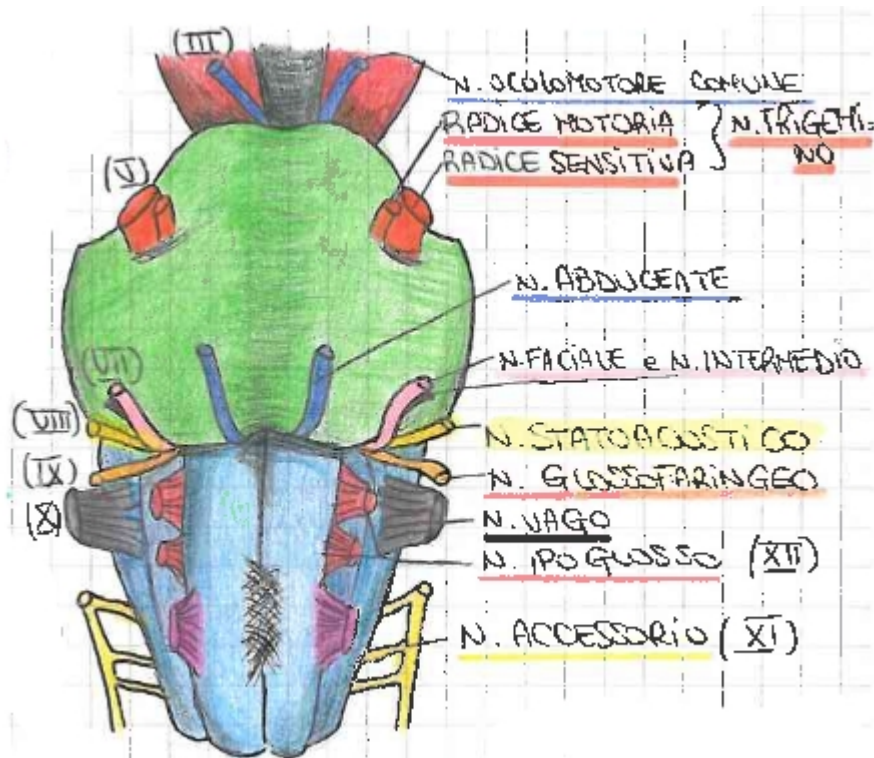 (III)
N. OCULOMOTORE COMUNE
RADICE MOTORIA
RADICE SENSITIVA
N. TRIGEMI=
NO
(V)
N. ABDUCENTE
(VII)
N. FACIALE e N. INTERMEDIO
(VIII)
N. STATOACUSTICO
(IX)
N. GLOSSOFARINGEO
(X)
N. VAGO
N. IPOGLOSSO (XII)
N. ACCESSORIO (XI)